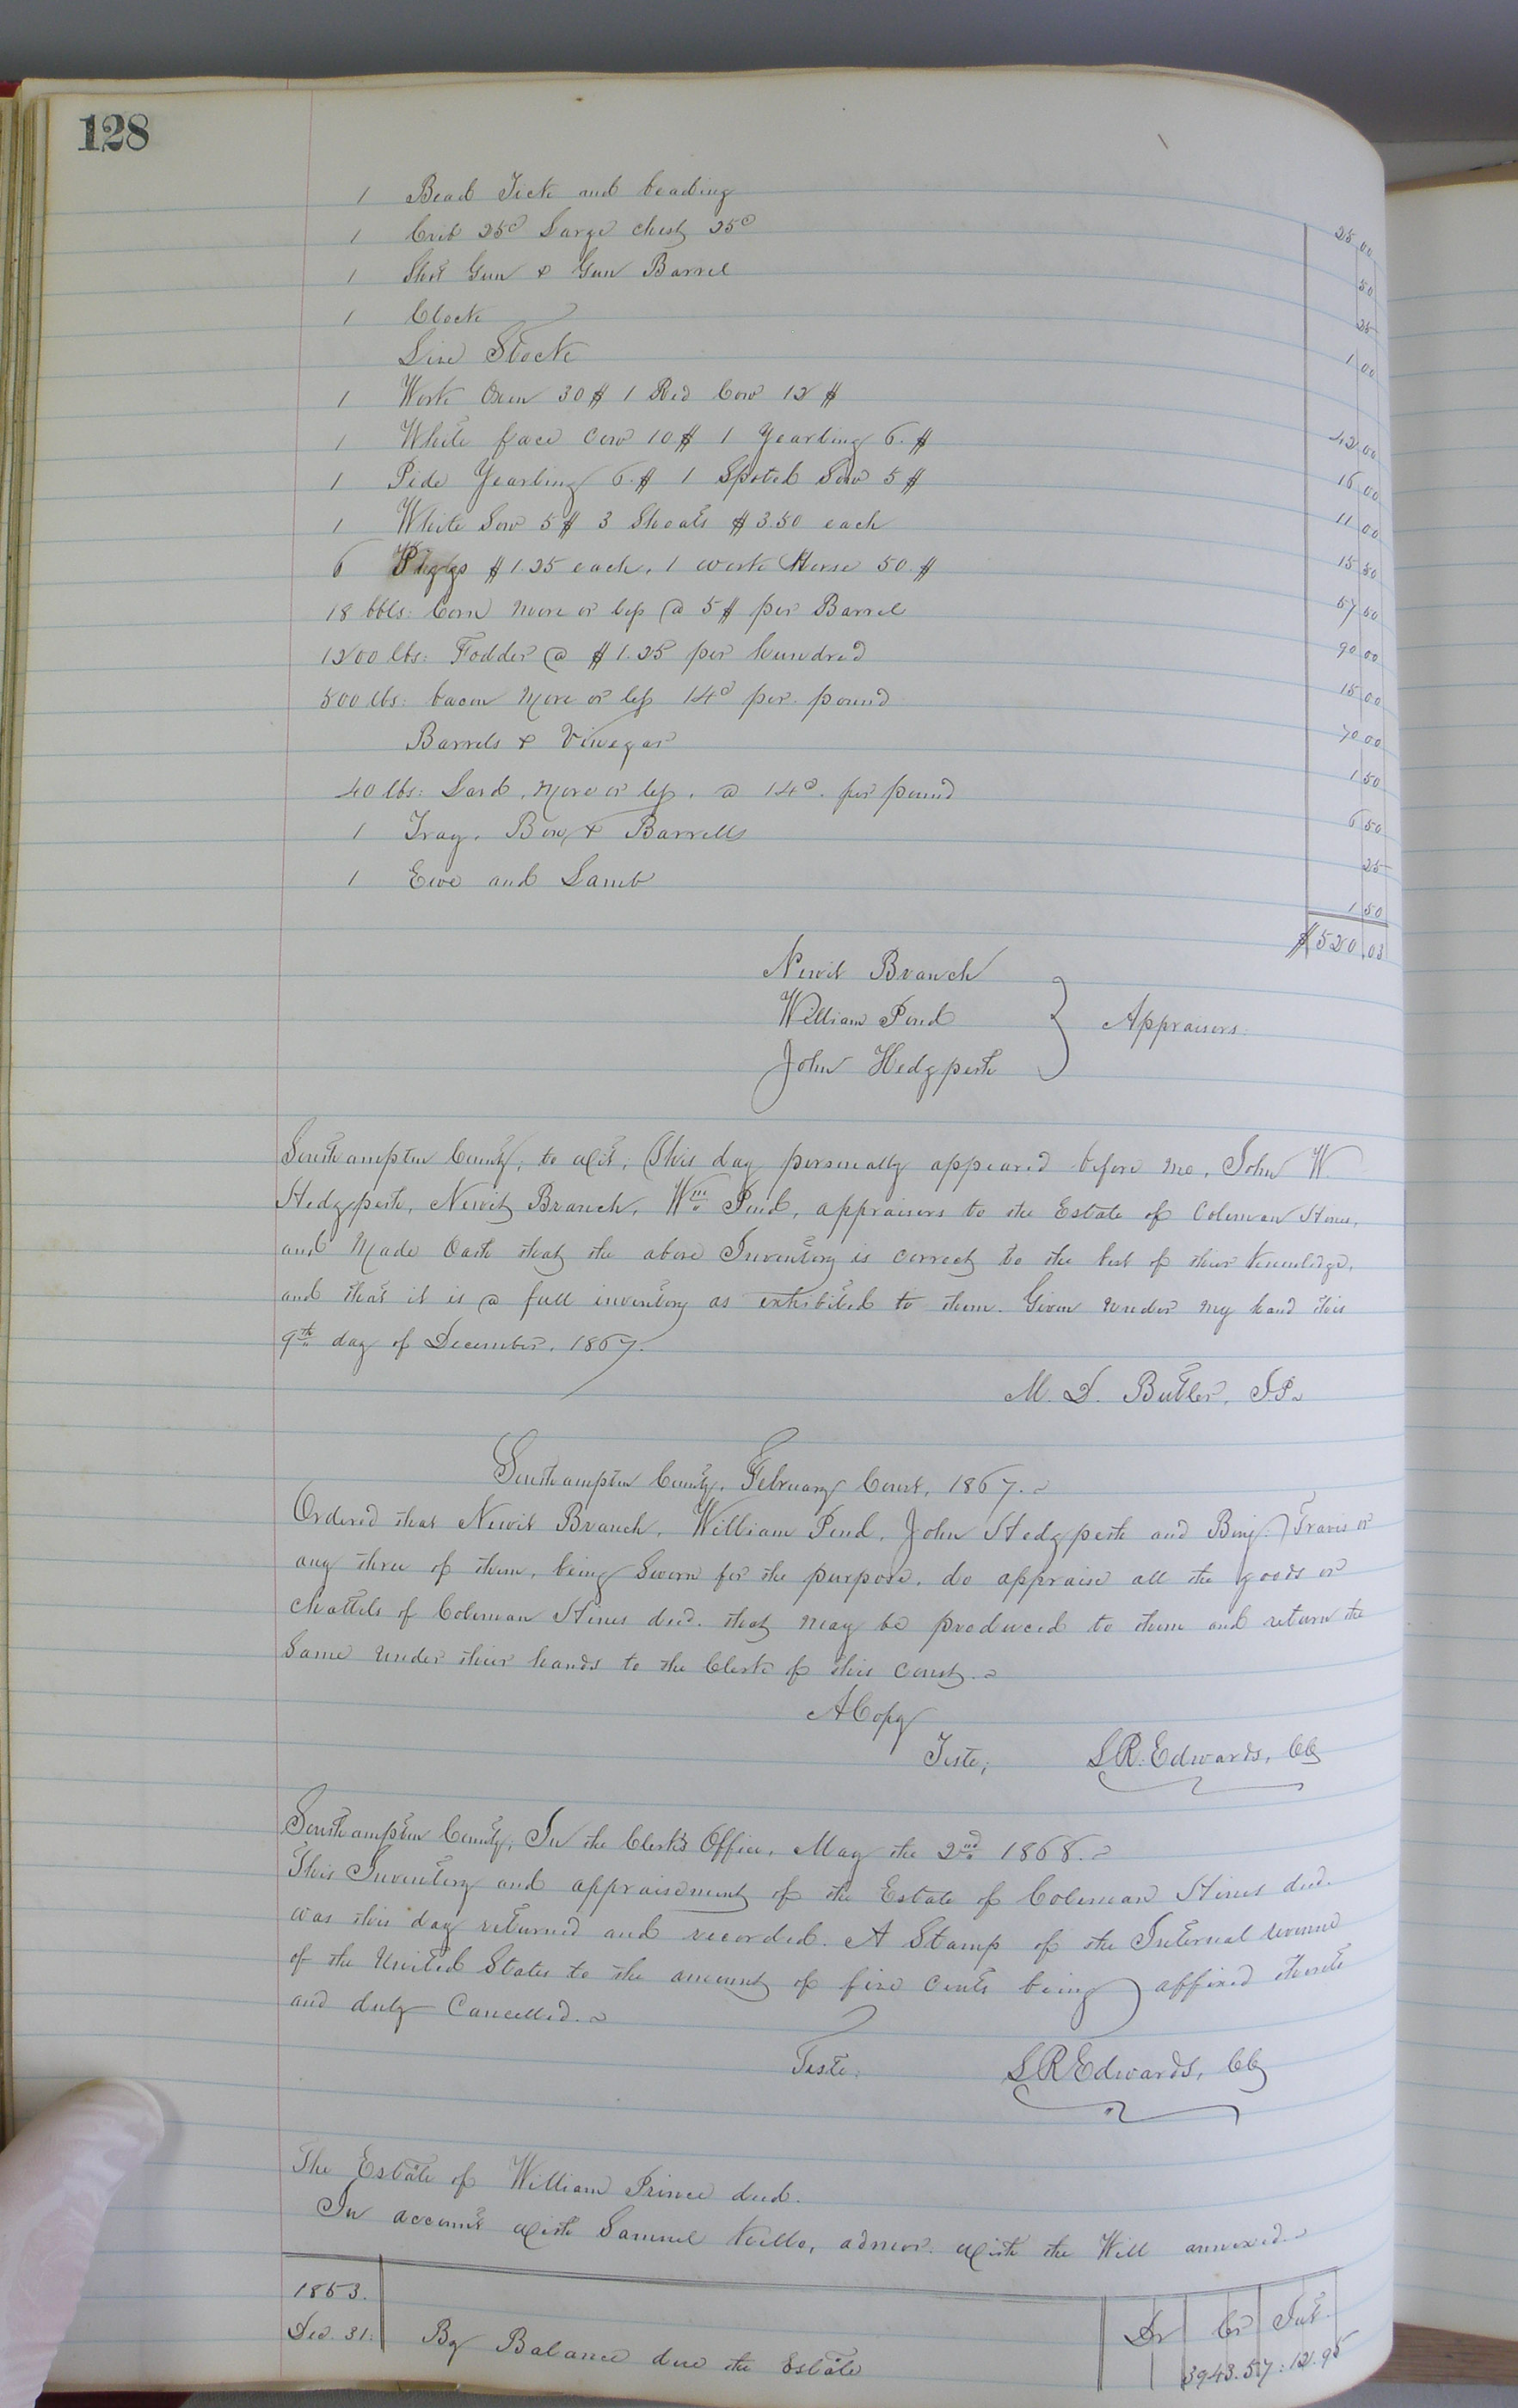 128
1 Bead Tick and beading 25 00
1 Crib 25c Large chest 25c 50
1 Shot Gun & Gun Barrel 25
1 Clock 1 00
Live Stock
1 Work Oxen 30$ 1 Red Cow 12$ 42 00
1 White face Cow 10$ 1 Yearling 6.$ 16 00
1 Pide Yearling 6.$ 1 Spoted Sow 5$ 11 00
1 White Sow 5$ 3 Shoats $3.50 each 15 50
6 Piggs $1.25 each, 1 work Horse 50.$ 57 50
18 bbls: Corn more or less @ 5$ per Barrel 90 00
1200 lbs: Fodder @ $1.25 per hundred 15 00
500 lbs: bacon more or less 14c per pound 70 00
Barrels & Vinegar 1 50
40 lbs: Lard, more or less, @ 14c. per pound 6 50
1 Tray, Box & Barrells 25
1 Ewe and Lamb 1 50
$520.03
Newit Branch
William Pond } Appraisers.
John Hedgpeth
Southampton County, to wit; This day personally appeared before me, John W.
Hedgpeth, Newit Branch, Wm Pond, appraisers to the Estate of Coleman Hines,
and made Oath that the above Inventory is correct to the best of their knowledge,
and that it is a full inventory as exhibited to them. Given under my hand this
9th day of December, 1867.
M. D. Butler, J.P.
Southampton County, February Court, 1867.
Ordered that Newit Branch, William Pond, John Hedgpeth and Benj. Travis or
any three of them, being Sworn for the purpose, do appraise all the goods or
chattels of Coleman Hines decd. that may be produced to them and return the
Same under their hands to the Clerk of this Court.
A Copy
Teste; L R. Edwards, CC
Southampton County, In the Clerk's Office, May the 2nd 1868.
This Inventory and appraisement of the Estate of Coleman Hines decd.
was this day returned and recorded. A Stamp of the Internal revenue
of the United States to the amount of five Cents being affixed thereto
and duly Cancelled.
Teste: L R Edwards, CC
The Estate of William Prince decd.
In account with Samuel Kello, admor. with the Will annexed.
1863. Dr Cr Int.
Dec. 31: By Balance due the Estate 3943.57: 12.95